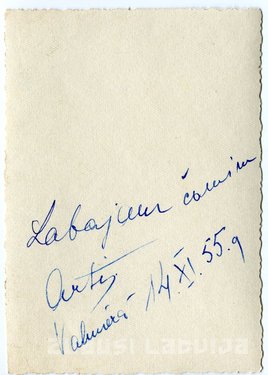 Labajam čomim
Artis
Valmierā 14.XI.55.g
zudusi Latvija